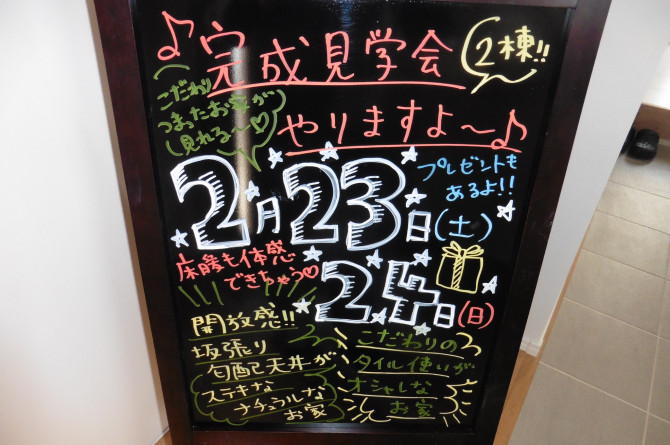 ♪完成見学会
2棟!!
こだわり
つまったお家が
見れる〜♡
やりますよ〜♪
プレゼントも
あるよ!!
2月23日(土)
床暖も体感
できちゃう♡
24日(日)
開放感!!
板張り
勾配天井が
ステキな
ナチュラルな
お家
こだわりの
タイル使いが
オシャレな
お家